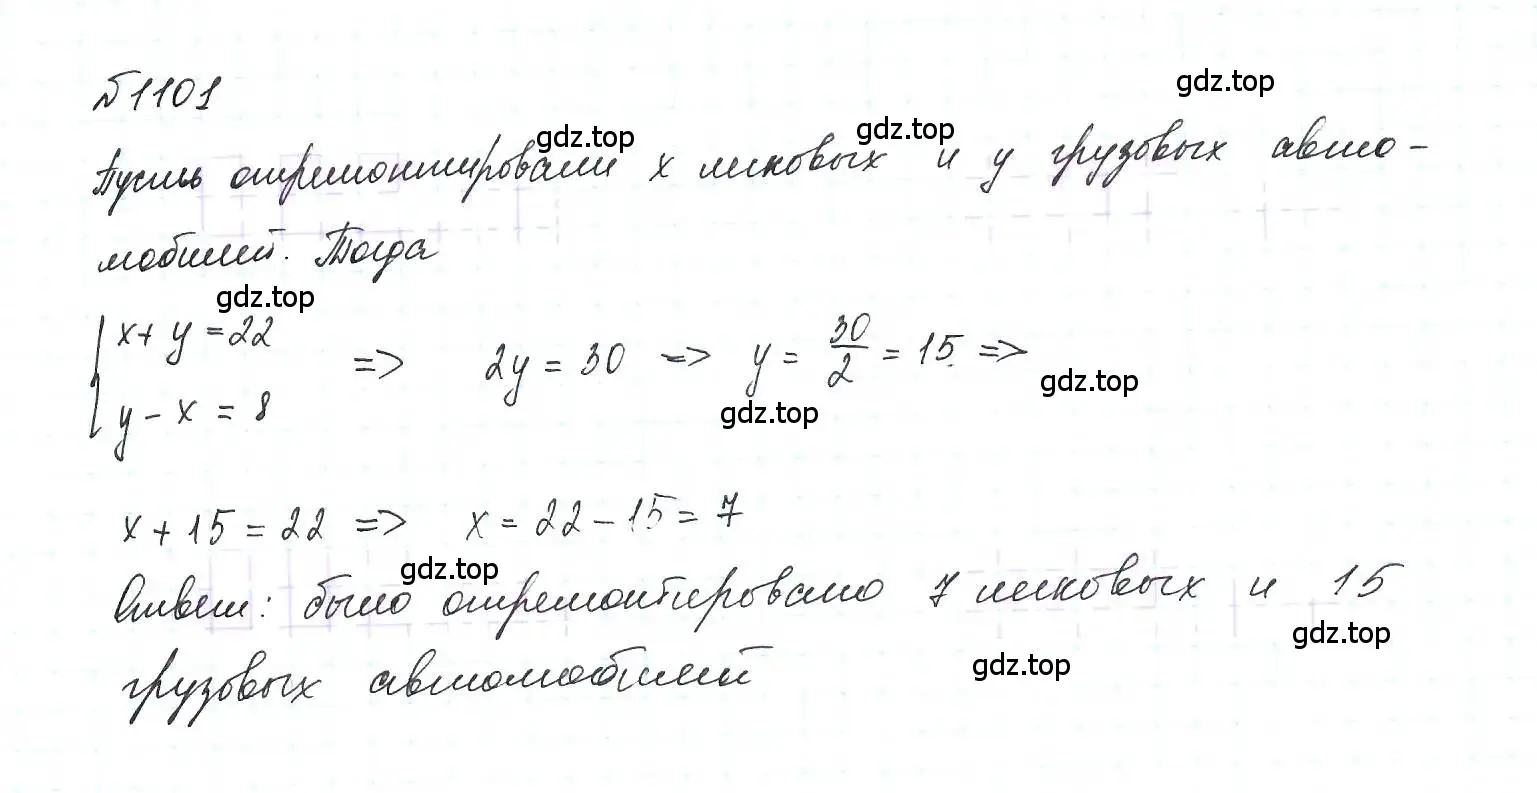 №1101
gdz.top
gdz.top gdz.top
Пусть отремонтировали x легковых и y грузовых авто-
мобилей. Тогда
gdz.top
{ x + y = 22
y - x = 8
=> 2y = 30 => y = 30/2 = 15 =>
gdz.top
gdz.top
x + 15 = 22 => x = 22 - 15 = 7
gdz.top
Ответ: было отремонтировано 7 легковых и 15
gdz.top
gdz.top
грузовых автомобилей